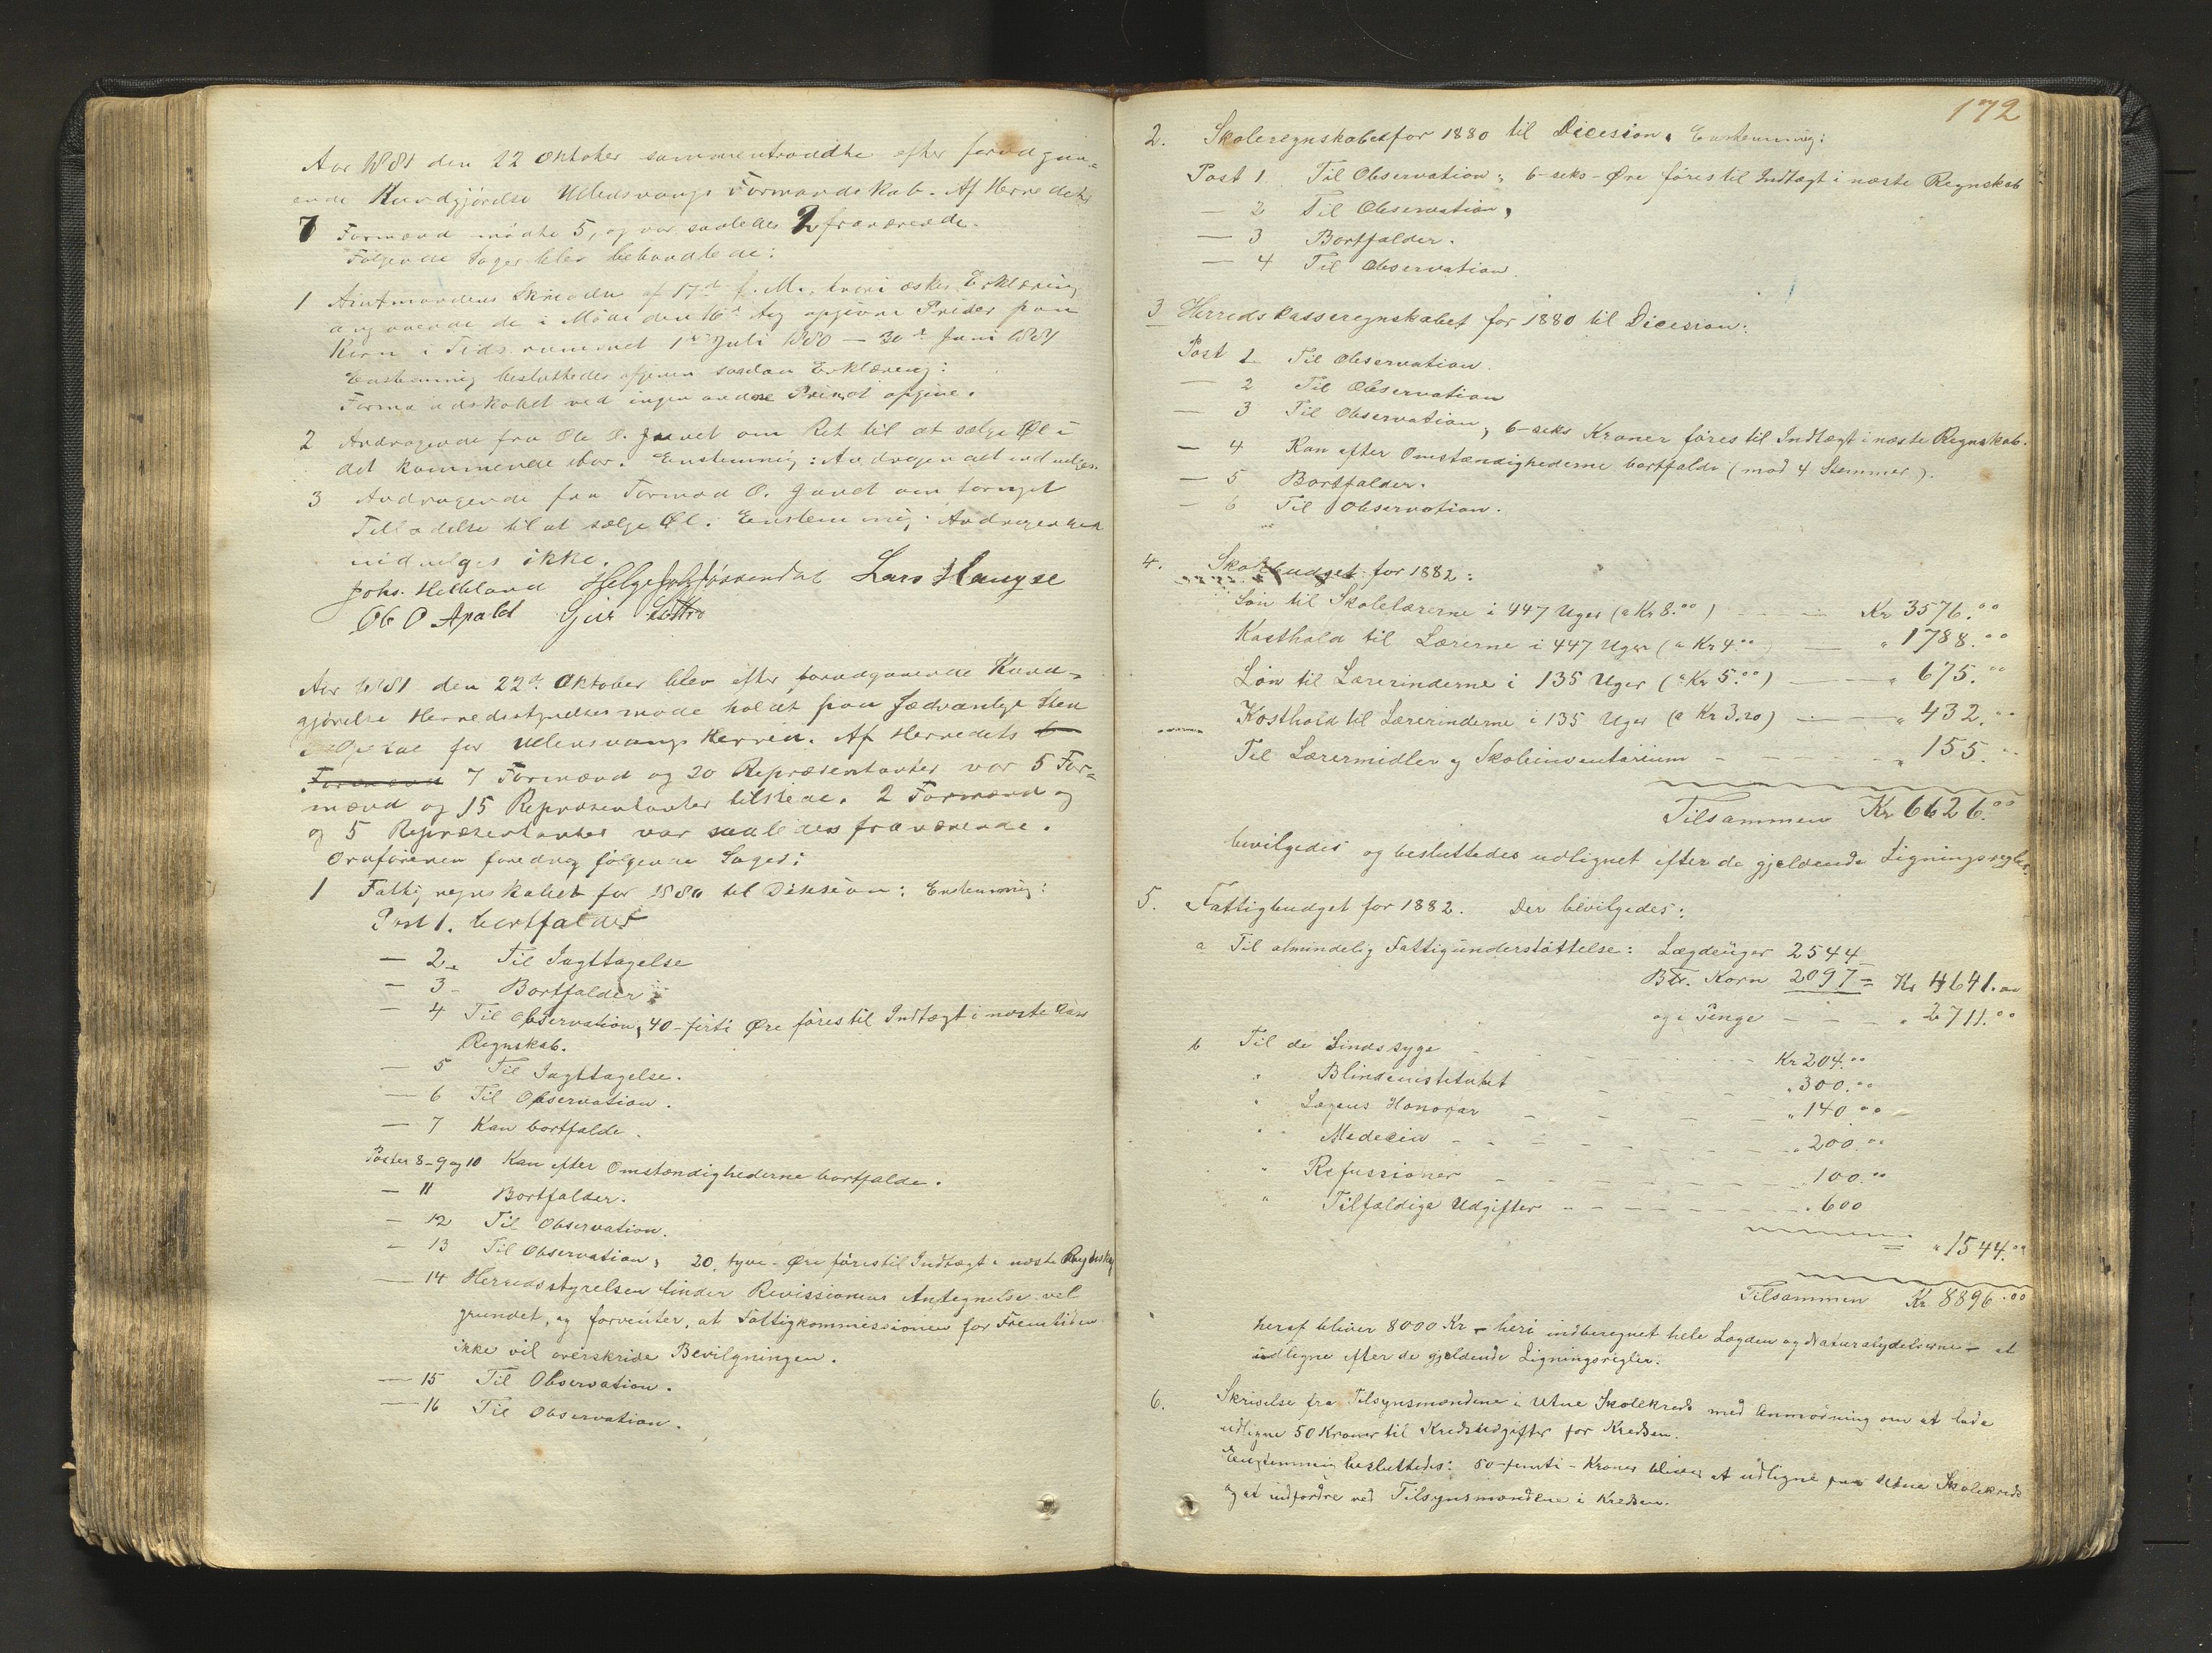 Aar 1881 den 22 Oktober sammentraadte efter forudgaa-
ende Kundgjörelse Ullensvangs Formandskab. Af Herredets
7 Formænd mödte 5, og var saaledes 2 fraværende.
Fölgende Sager blev behandlede:
1 Amtmandens Skrivelse af 17de f. M., hvori æskes Erklæring
angaaende de i Möde den 16de Aug opgivne Priser paa
Korn i Tidsrummet 1ste Juli 1880 – 30te Juni 1881
Enstemmig besluttedes afgiven saadan Erklæring:
Formandskabet ved ingen andre Priser at opgive.
2 Andragende fra Ole O. Jaavet om Ret til at sælge Øl i
det kommende Aar. Enstemmig: Andragendet indvilges
3 Andragende fra Tormod O. Jaavet om fornyet
Tilladelse til at sælge Øl. Enstemmig: Andragendet
indvilges ikke.
Johs. Helleland Helge Jössendal Lars Haugse
Ob O Apald Sjur Lothe
Aar 1881 den 22de Oktober blev efter forudgaaende Kund-
gjörelse Herredsstyrelsesmöde holdt paa sædvanlige Sted
for Ullensvangs Herred. Af Herredets
Formænd 7 Formænd og 20 Repræsentanter var 5 For-
mænd og 15 Repræsentanter tilstede. 2 Formænd og
og 5 Repræsentanter var saaledes fraværende.
Ordföreren foredrog fölgende Sager:
1 Fattigregnskabet for 1880 til Desision: Enstemmig:
Post 1. bortfalder
— 2. Til Iagttagelse
— 3 - Bortfalder
— 4 Til Observation, 40-firti Øre föres til Indtægt i næste Aars
Regnskab.
— 5 Til Iagttagelse.
— 6 Til Observation.
— 7 Kan bortfalde.
Poster 8-9 og 10 Kan efter Omstændighederne bortfalde.
— 11 Bortfalder.
— 12 Til Observation.
— 13 Til Observation, 20, tyve - Øre föres til Indtægt i næste Regnskab
— 14 Herredsstyrelsen finder Revissionens Antegnelse vel
grundet, og forventer, at Fattigkommissionen for Fremtiden
ikke vil overskride Bevilgningen.
— 15 Til Observation.
— 16 Til Observation.
172
2. Skoleregnskabet for 1880 til Dicesion. Enstemmig:
Post 1 Til Observation, 6-seks-Øre föres til Indtægt i næste Regnskab
— 2 Til Observation,
— 3 Bortfalder.
— 4 Til Observation.
3 Herredskasseregnskabet for 1880 til Dicesion:
Post 1 Til Observation.
— 2 Til Observation
— 3 Til Observation, 6-seks Kroner föres til Indtægt i næste Regnskab.
— 4 Kan efter Omstændighederne bortfalde (mod 4 Stemmer).
— 5 Bortfalder.
— 6 Til Observation.
4. Skolbudget for 1882:
Lön til Skolelærerne i 447 Uger (a Kr 8.00) Kr 3576.00
Kosthold til Lærerne i 447 Uger (a Kr 4.00) „ 1788.00
Lön til Lærerinderne i 135 Uger (a Kr 5.00) „ 675.00
Kosthold til Lærerinderne i 135 Uger (a Kr 3.20) „ 432.00
Til Lærermidler og Skoleinventarium „ 155.00
Tilsammen Kr 6626.00
bevilgedes og besluttedes udlignet efter de gjældende Ligningsregler.
5. Fattigbudget for 1882. Der bevilgedes:
a Til almindelig Fattigunderstöttelse: Lægdeuger 2544
Btr. Korn 2097 = Kr 4641.00
og i Penge „ 2711.00
b Til de Sindssyge Kr 204.00
„ Blindeinstitutet „ 300.00
„ Lægens Honorar „ 140.00
„ Medecin „ 200.00
„ Refussioner „ 100.00
„ Tilfældige Udgifter „ 600
= „ 1544.00
Tilsammen Kr 8896.00
heraf bliver 8000 Kr – heri indberegnet hele Lægden og Naturalydelserne – at
udligne efter de gjældende Ligningsregler.
6. Skrivelse fra Tilsynsmændene i Utne Skolekreds med Anmodning om at lade
udligne 50 Kroner til Kredsudgifter for Kredsen.
Enstemmig besluttedes: 50-femti-Kroner bliver at udligne paa Utne Skolekreds
og at indfordre ved Tilsynsmændene i Kredsen.